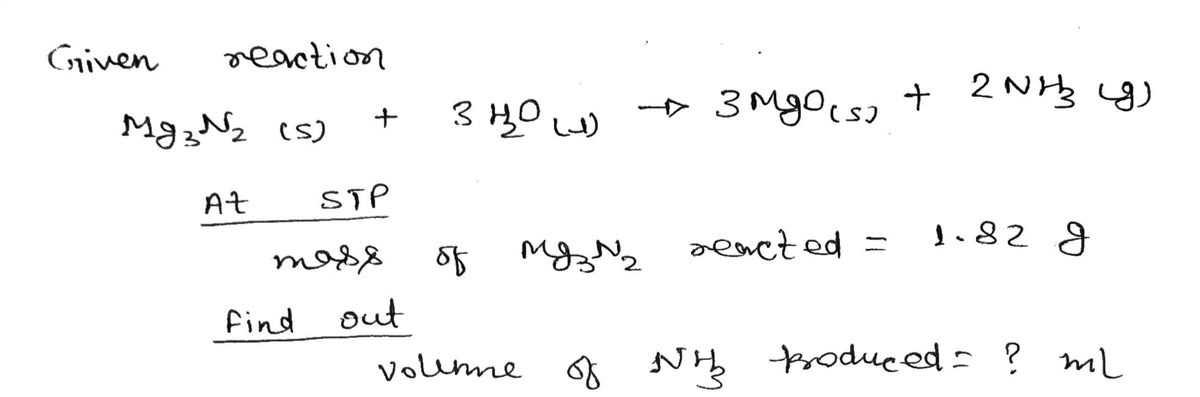 Given reaction
Mg₃N₂ (s) + 3 H₂O (l) → 3 MgO (s) + 2 NH₃ (g)
At STP
mass of Mg₃N₂ reacted = 1.82 g
find out
volume of NH₃ produced = ? ml